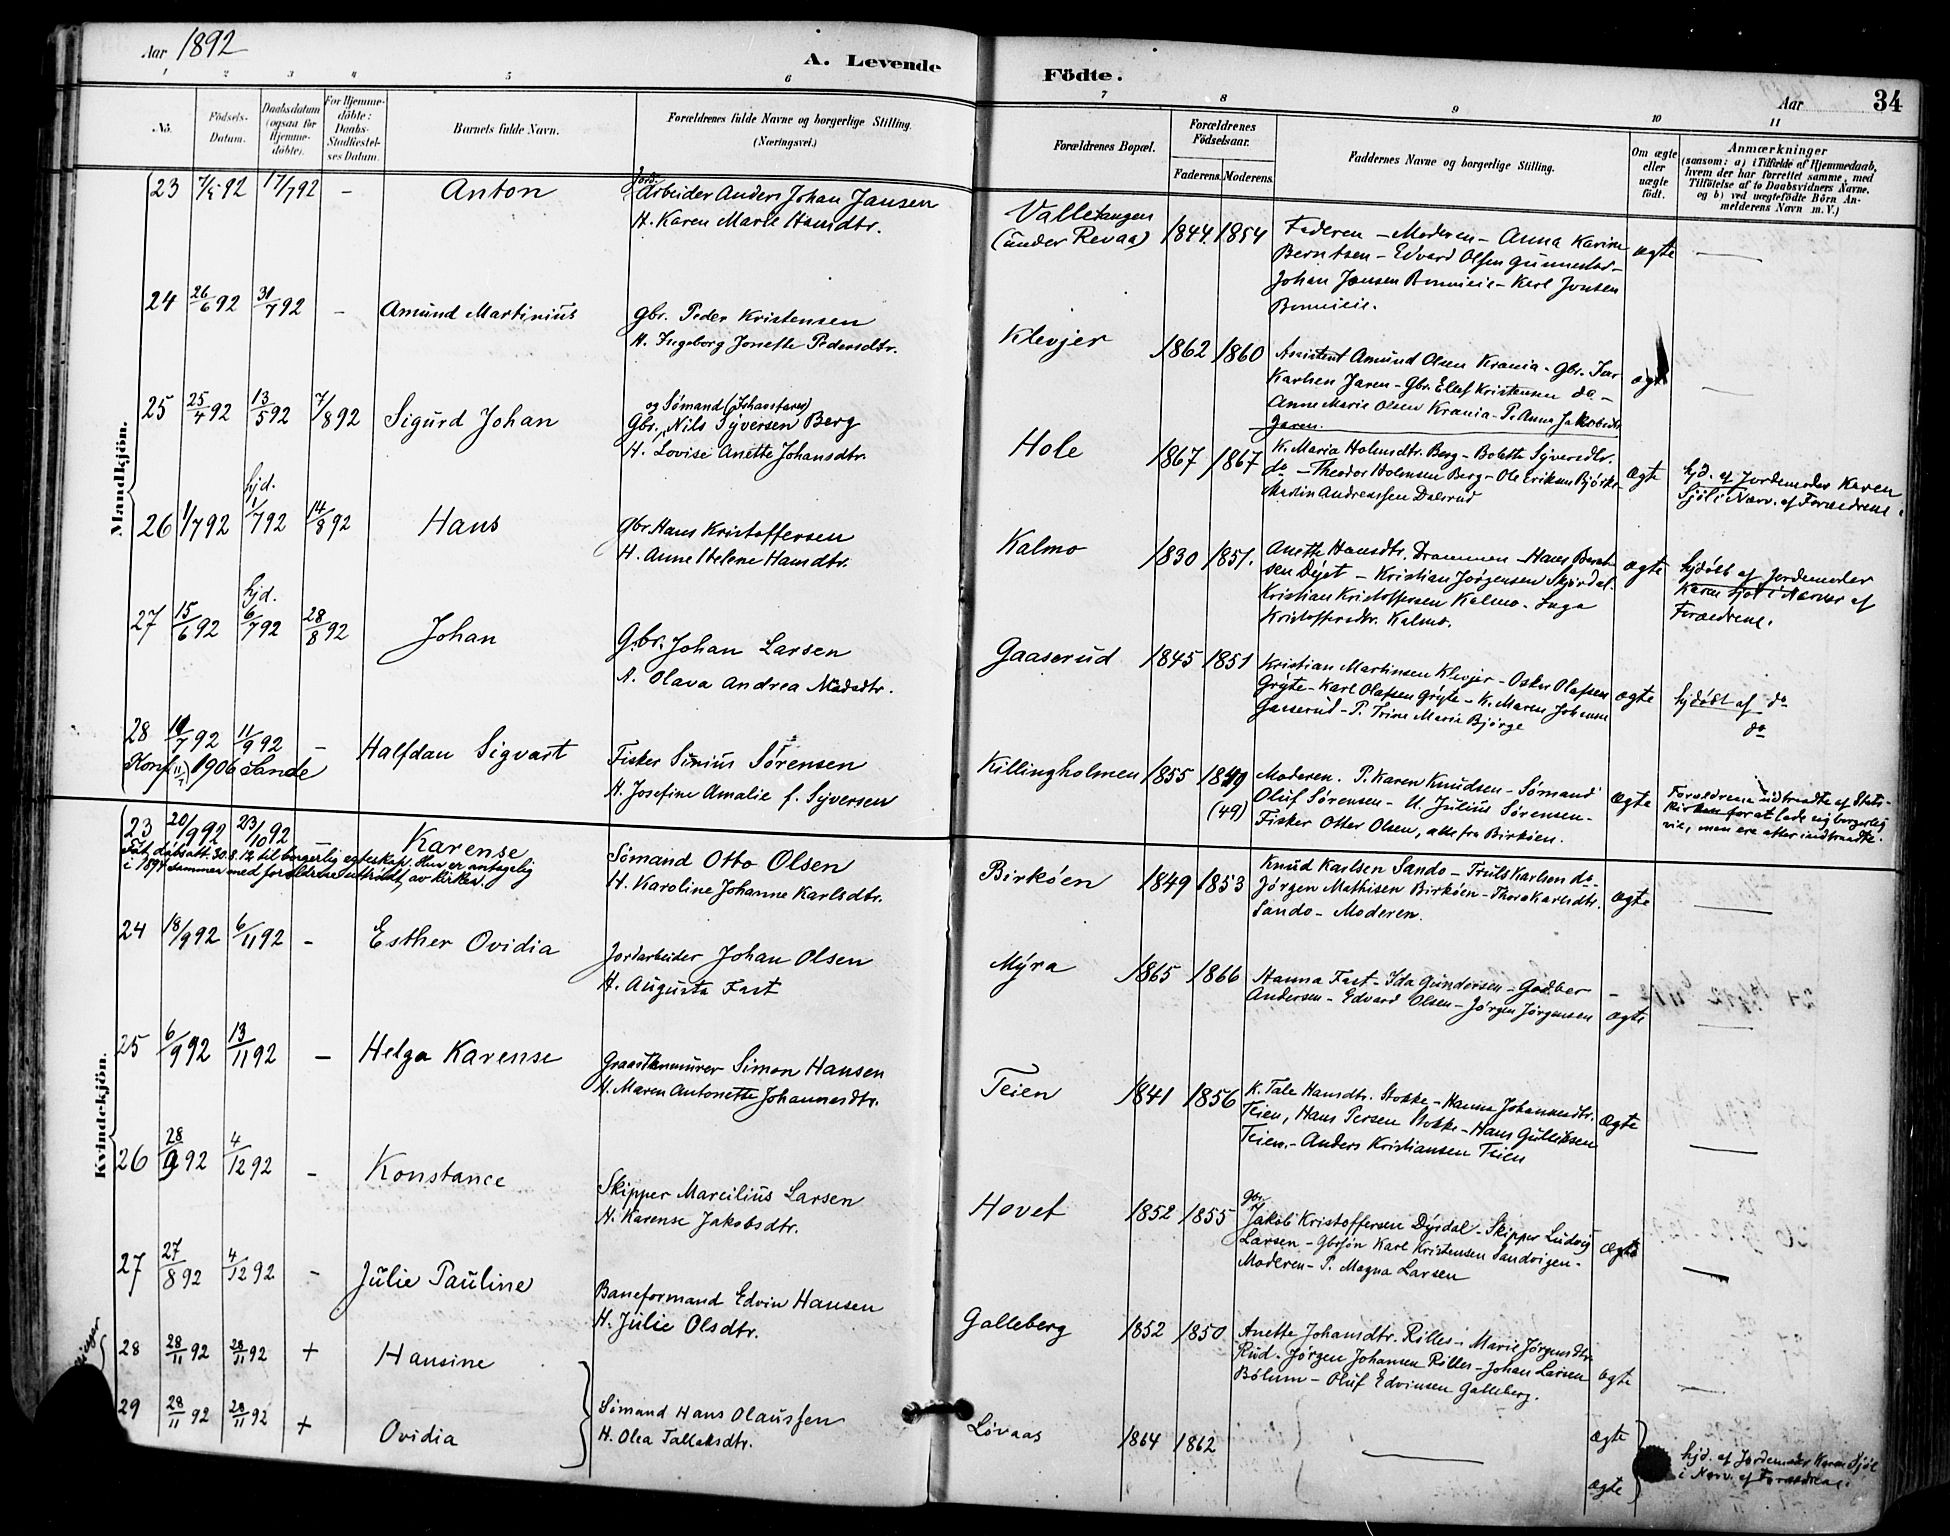 Aar 1892
A. Levende
Födte.
Aar
34
1 2 3 4 5 6
7 8 9 10 11
No.
Födsels-
Datum.
Daabsdatum
(ogsaa for
Hjemme-
döbte).
For Hjemme-
döbte:
Daabs-
Stadfæstel-
ses Datum.
Barnets fulde Navn.
Forældrenes fulde Navne og borgerlige Stilling
(Næringsvei.)
Forældrenes Bopæl.
Forældrenes
Födselsaar.
Faderens. Moderens.
Faddernes Navne og borgerlige Stilling.
Om ægte
eller
uægte
födt.
Anmærkninger
(saasom: a) i Tilfælde af Hjemmedaab,
hvem der har forrettet samme, med
Tilföielse af to Daabsvidners Navne.
og b) ved uægtefödte Börn An-
melderens Navn m. V.)
Mandkjön.
23 7/5 92 17/7 92 – Anton
Jord-
Arbeider Anders Johan Jansen
H. Karen Marie Hansdtr.
Valletangen
(under Revaa) 1844 1854
Faderen – Moderen – Anna Karine
Berntsen – Edvard Olsen Gunnestad –
Johan Jansen – Karl Jonsen
ægte —
24 26/6 92 31/7 92 – Amund Martinius
Gbr. Peder Kristensen
H. Ingeborg Jonette Pedersdtr.
Klevjer 1862 1860
Assistent Amund Olsen Krania – Gbr.
Karlsen Jaren – Gbr. Ellef Kristensen do –
Anne Marie Olsen Krania – P. Anna Jakobsdtr
Jaren.
ægte —
25 25/4 92 13/5 92 7/8 92 Sigurd Johan
og Sömand
Gbr. Nils Syversen Berg
H. Lovise Anette Johansdtr.
Hole 1867 1867
K. Maria Holmsdtr. Berg – Bolette Syversdtr.
do – Theodor Holmsen Berg – Ole Eriksen
Martin Andreassen Dalsrud
ægte
hjd. af Jordemoder Karen
Sjöl i Nærv. af Forældrene.
26 1/7 92 hjd. 1/7 92 14/8 92 Hans
Gbr. Hans Kristoffersen
H. Anne Helene Hansdtr.
Kalmo 1830 1851.
Anette Hansdtr. Drammen – Hans Bernt-
sen – Kristian Jörgensen
Kristian Kristoffersen Kalmo – Inga
Kristoffersdtr. Kalmo.
ægte
hjdöbt af Jordemoder
Karen Sjöl i Nærver af
Forældrene.
27 15/6 92 hjd. 6/7 92 28/8 92 Johan
Gbr. Johan Larsen
H. Olava Andrea Madsdtr.
Gaaserud 1845 1851
Kristian Martinsen Klevjer – Oskar Olafsen
Gryte – Karl Olafsen Gryte – K. Maren Johansen
Gaaserud – P. Trine Marie Bjørge
ægte
hjdöbt af do
do
28 11/7 92 11/9 92 – Halfdan Sigvart
Konf. 1906 Sande
Fisker Sørensen
H. Josefine Amalie f. Syversen
Killingholmen 1855 1849
(49)
Moderen. P. Karen Knudsen – Sömand
Oluf Sørensen – U. Julius Sørensen –
Fisker Otter Olsen, alle fra Birköen.
ægte
Forældrene udtraadte af Stats-
kirken for at lade sig borgerlig
vie, men ere atter indtraadte.
Kvindekjön.
23 20/9 92 23/10 92 Karense
Fåt dåbsatt. 30.8.12 til borgerlig egteskap. Hun er antagelig
i 1894 sammen med forældrene utträdt av kirken.
Sömand Otto Olsen
H. Karoline Johanne Karlsdtr.
Birköen 1849 1853
Knud Karlsen Sando – Truls Karlsen do –
Jörgen Mathisen Birköen – Thora Karlsdtr.
Sando – Moderen.
ægte —
24 18/9 92 6/11 92 – Esther Ovidia
Jordarbeider Johan Olsen
H. Augusta Fast
Myra 1865 1866
Hanna Fast – Ida Gundersen – Godber
Andersen – Edvard Olsen – Jörgen Jörgensen
ægte —
25 6/9 92 13/11 92 – Helga Karense
Graastensmurer Simon Hansen
H. Maren Antonette Johannesdtr.
Teien 1841 1856
K. Tale Hansdtr. Stokke – Hanna Johannesdtr.
Teien, Hans Persen Stokke – Hans Gulliksen
Teien – Anders Kristiansen Teien
ægte —
26 28/9 92 4/12 92 – Konstance
Skipper Marcilius Larsen
H. Karense Jakobsdtr.
Hovet 1852 1855
Gbr.
Jakob Kristoffersen Dyrdal – Skipper Ludvig
Larsen – Gbrsön Karl Kristensen Sandvigen –
Moderen – P. Magna Larsen
ægte —
27 27/8 92 4/12 92 – Julie Pauline
Baneformand Edvin Hansen
H. Julie Olsdtr.
Galleberg 1852 1850
Anette Johansdtr. Rilles – Marie Jörgensdtr.
Rud – Jörgen Johansen Rilles – Johan Larsen
Bölum – Oluf Edvinsen Galleberg.
ægte —
28 28/11 92 28/11 92 + Hansine
29 28/11 92 28/11 92 + Ovidia
Sömand Hans Olaussen
H. Olea Tallaksdtr.
Lövaas 1864 1862 —
ægte
ægte
hjd. af Jordemoder Karen Sjöl
i Nærv. af Forældrene.